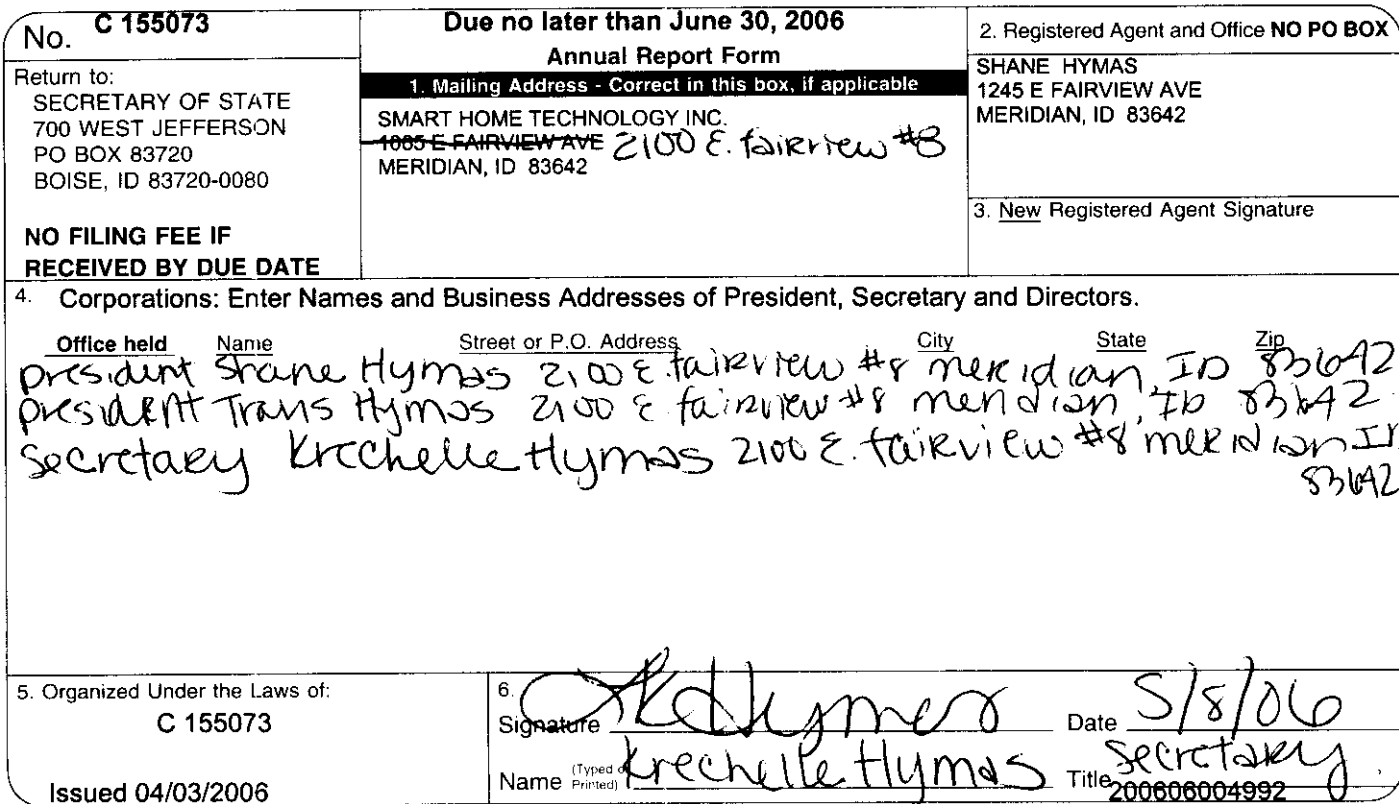 No. C 155073
Return to:
SECRETARY OF STATE
700 WEST JEFFERSON
PO BOX 83720
BOISE, ID 83720-0080
NO FILING FEE IF
RECEIVED BY DUE DATE
Due no later than June 30, 2006
Annual Report Form
1. Mailing Address - Correct in this box, if applicable
SMART HOME TECHNOLOGY INC.
1065 E FAIRVIEW AVE 2100 E. fairview #8
MERIDIAN, ID 83642
2. Registered Agent and Office NO PO BOX
SHANE HYMAS
1245 E FAIRVIEW AVE
MERIDIAN, ID 83642
3. New Registered Agent Signature
4. Corporations: Enter Names and Business Addresses of President, Secretary and Directors.
Office held Name Street or P.O. Address City State Zip
president Shane Hymas 2100 E. fairview #8 meridian, ID 83642
president Travis Hymas 2100 E fairview #8 meridian, ID 83642
Secretary Krechelle Hymas 2100 E. fairview #8 meridian ID
83642
5. Organized Under the Laws of:
C 155073
Issued 04/03/2006
6.
Signature K Hymas Date 5/8/06
Name (Typed or Printed) Krechelle Hymas Title Secretary
200606004992